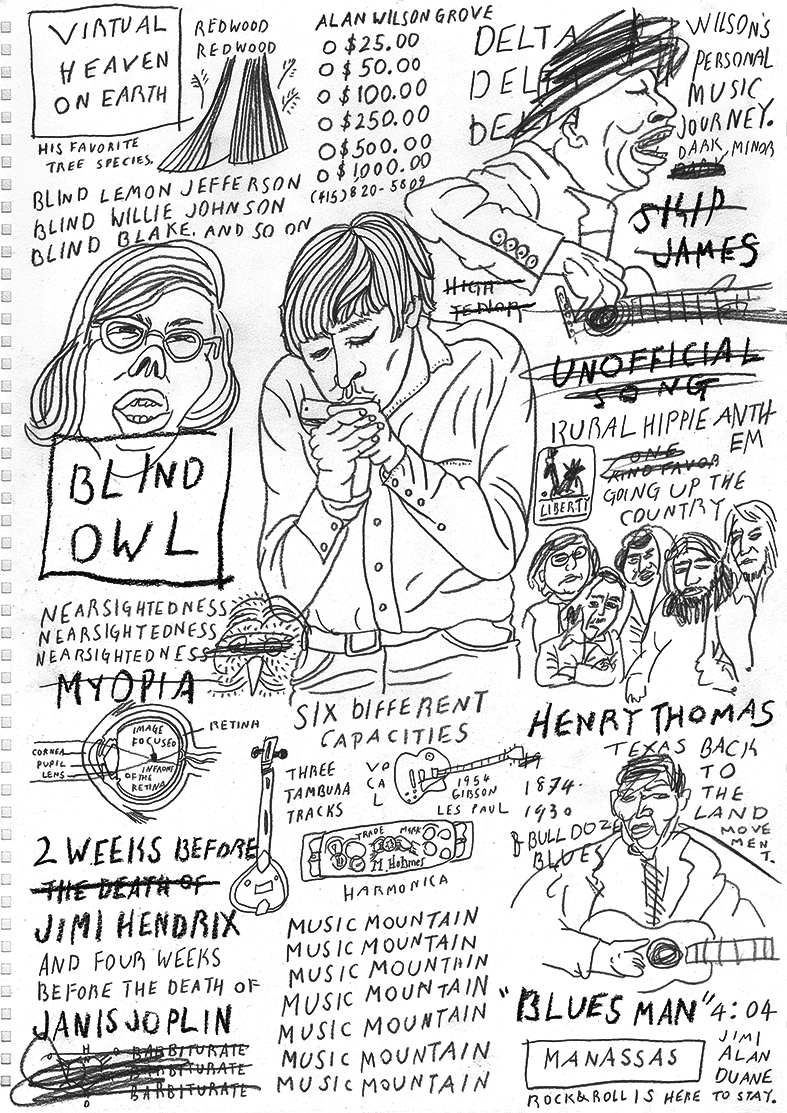 VIRTUAL
HEAVEN
ON EARTH
REDWOOD
REDWOOD
HIS FAVORITE
TREE SPECIES.
ALAN WILSON GROVE
O $25.00
O $50.00
O $100.00
O $250.00
O $500.00
O $1,000.00
(415) 820-5809
DELTA
DELTA
DELTA
WILSON'S
PERSONAL
MUSIC
JOURNEY.
DARK, MINOR
DARK
SKIP
JAMES
BLIND LEMON JEFFERSON
BLIND WILLIE JOHNSON
BLIND BLAKE. AND SO ON
HIGH
TENOR
UNOFFICIAL
SONG
RURAL HIPPIE ANTH
EM
ONE
KIND FAVOR
LIBERTY
GOING UP THE
COUNTRY
BLIND
OWL
NEARSIGHTEDNESS
NEARSIGHTEDNESS
NEARSIGHTEDNESS
MYOPIA
CORNEA
PUPIL
LENS
IMAGE
FOCUSED
INFRONT
OF THE
RETINA
RETINA
SIX DIFFERENT
CAPACITIES
THREE
TAMBURA
TRACKS
VO
CA
L
1954
GIBSON
LES PAUL
TRADE MARK
M. Hohner
HARMONICA
HENRY THOMAS
TEXAS BACK
TO
THE
LAND
MOVE
MEN
T.
1874-
1930
BULLDOZE
BLUES
2 WEEKS BEFORE
THE DEATH OF
JIMI HENDRIX
AND FOUR WEEKS
BEFORE THE DEATH OF
JANIS JOPLIN
BARBITURATE
BARBITURATE
BARBITURATE
MUSIC MOUNTAIN
MUSIC MOUNTAIN
MUSIC MOUNTAIN
MUSIC MOUNTAIN
MUSIC MOUNTAIN
MUSIC MOUNTAIN
MUSIC MOUNTAIN
"BLUES MAN" 4:04
MANASSAS
JIMI
ALAN
DUANE
ROCK&ROLL IS HERE TO STAY.